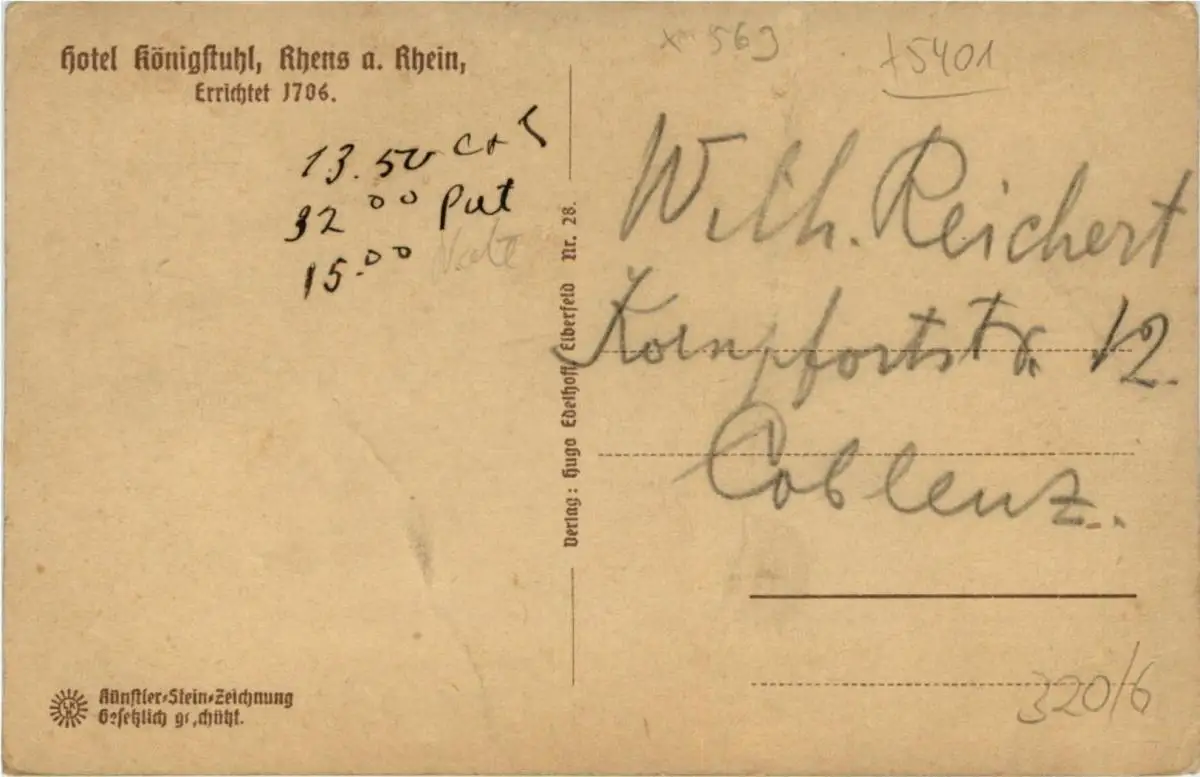 Hotel Königstuhl, Rhens a. Rhein,
Errichtet 1706.
13.50
32.00 Put
15.00
Verlag: Hugo Edelhoff, Elberfeld Nr. 28.
569
+5401
Wilh. Reichert
Kornpfortstr. 12.
Coblenz.
320/6
Künstler-Stein-Zeichnung
Gesetzlich geschützt.